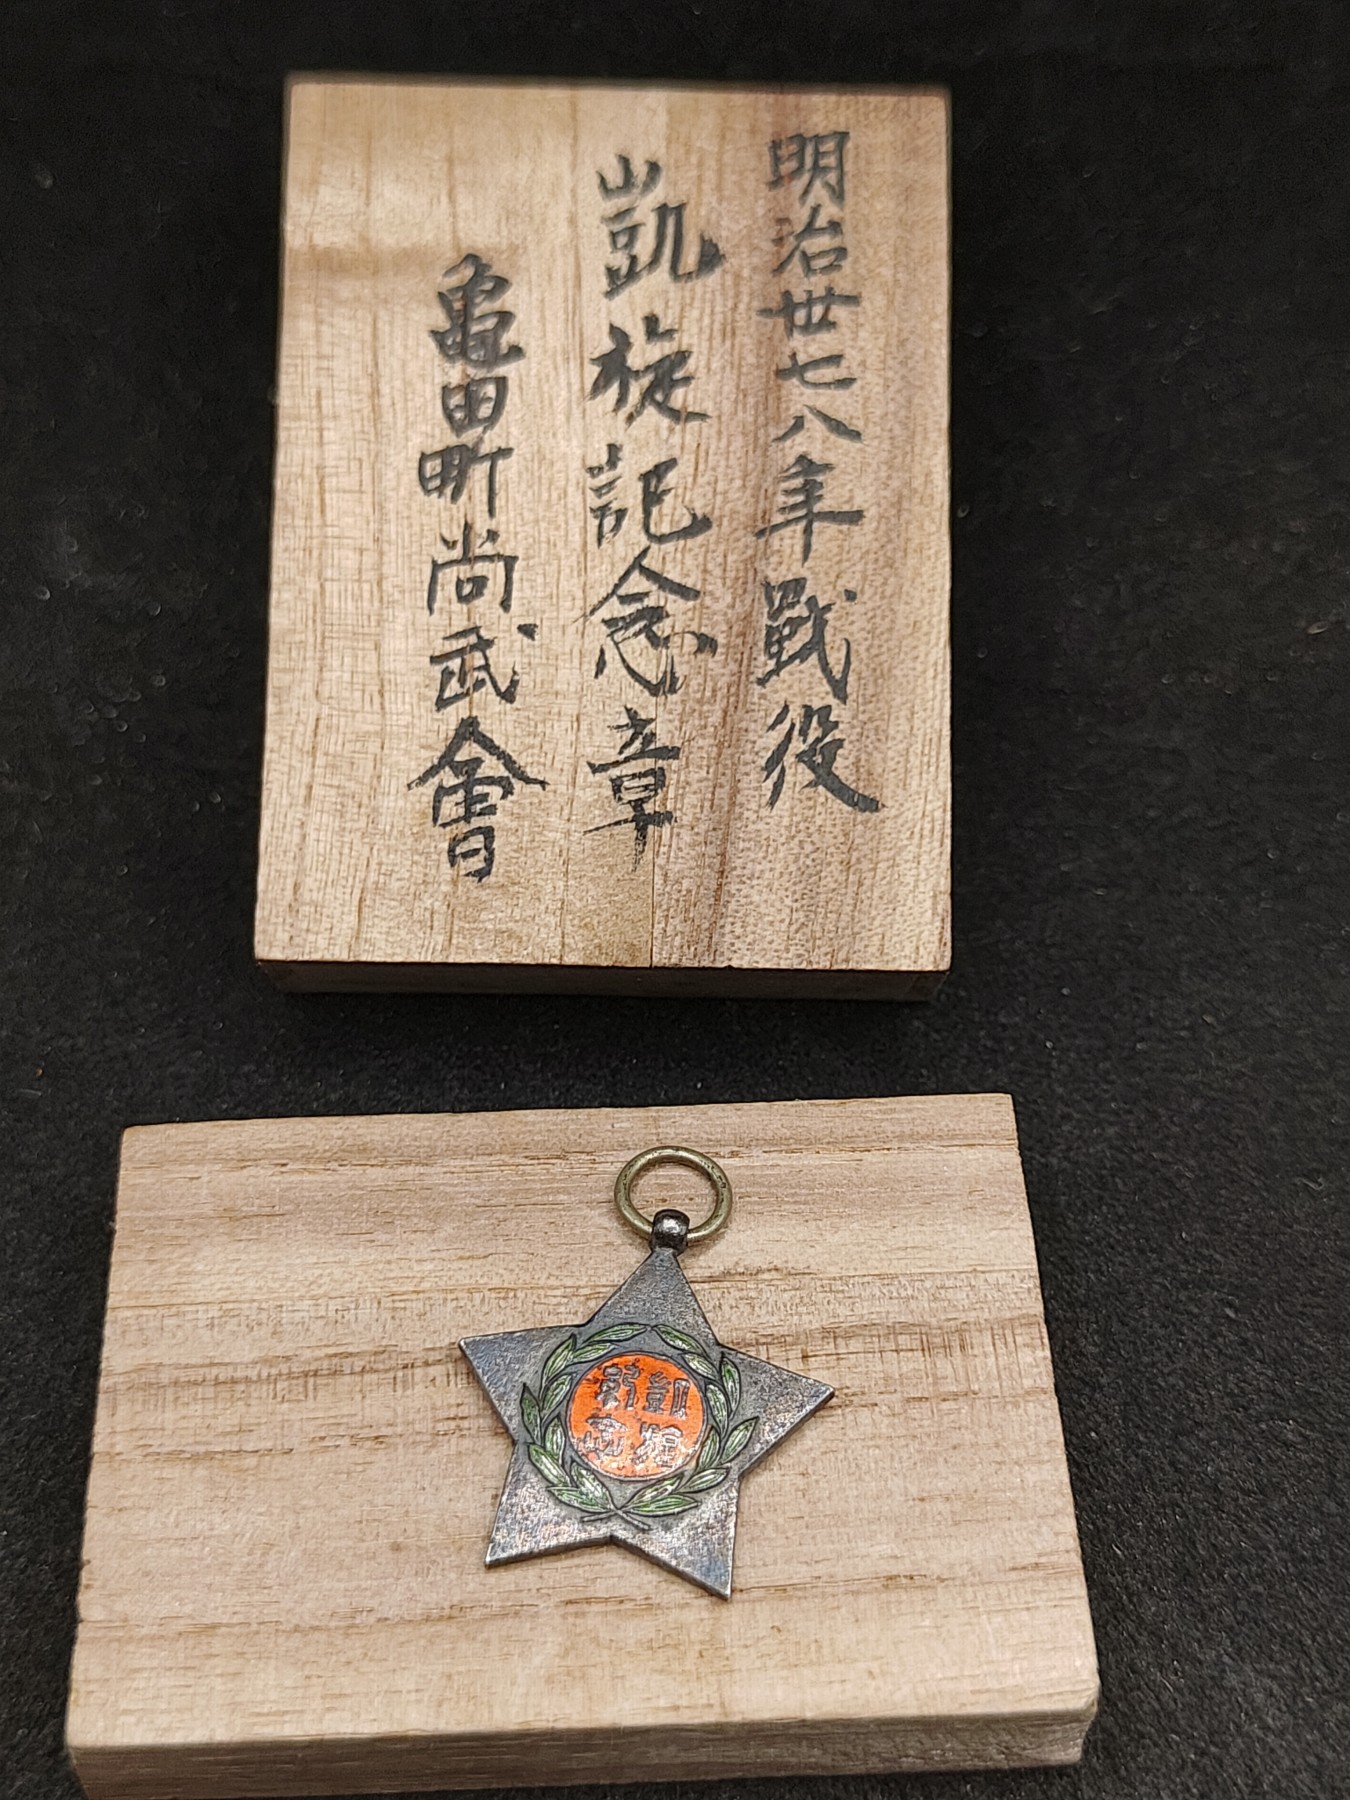 明治丗七八年戰役
凱旋記念章
亀田町尚武會
凱旋
紀念